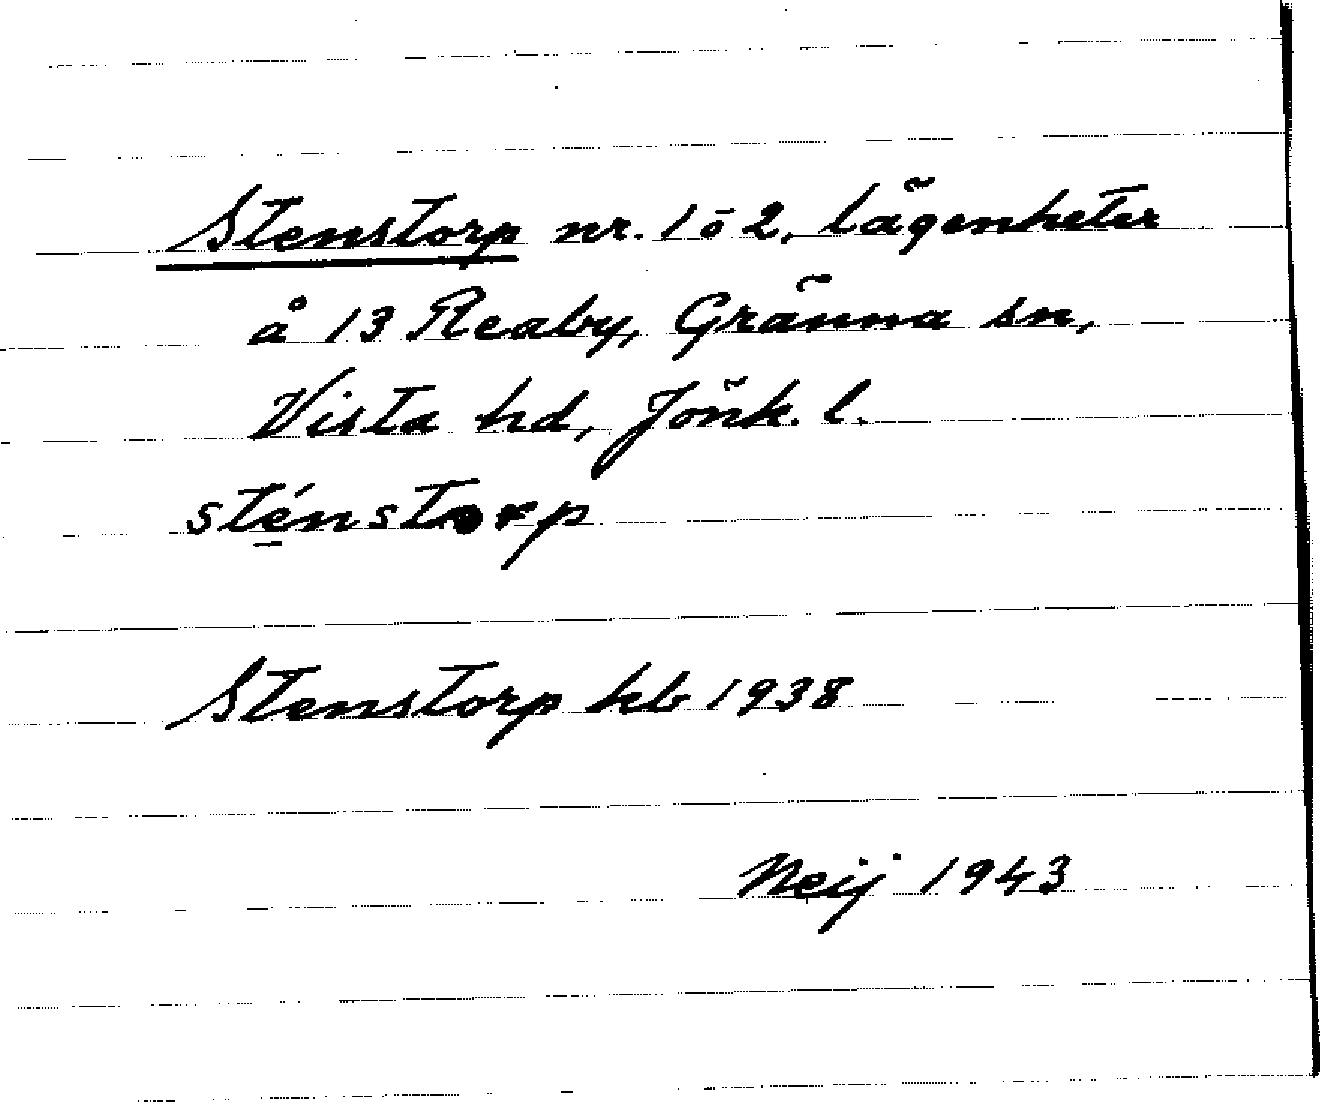 Stenstorp nr. 1 o 2, lägenheter
å 13 Reaby, Gränna sn,
Vista hd, Jönk. l.
sténstorp
Stenstorp kb 1938
Neij 1943